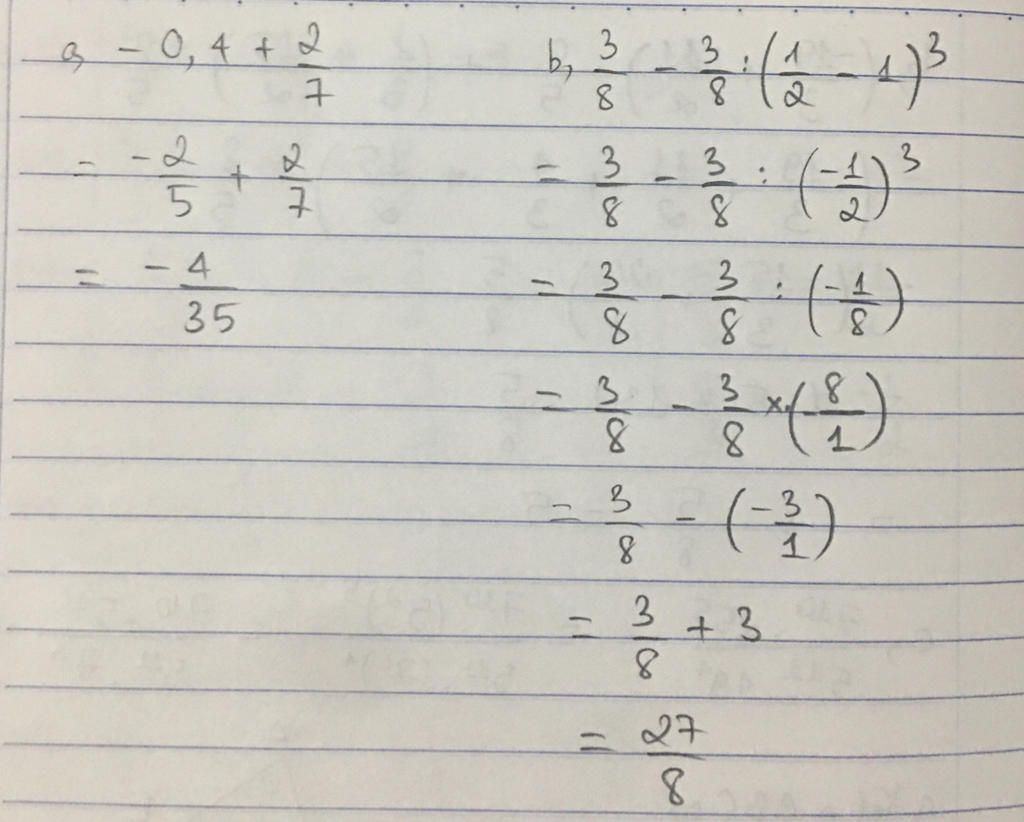 a, -0,4 + 2/7
= -2/5 + 2/7
= -4/35
b, 3/8 - 3/8 : (1/2 - 1)^3
= 3/8 - 3/8 : (-1/2)^3
= 3/8 - 3/8 : (-1/8)
= 3/8 - 3/8 × (-8/1)
= 3/8 - (-3/1)
= 3/8 + 3
= 27/8